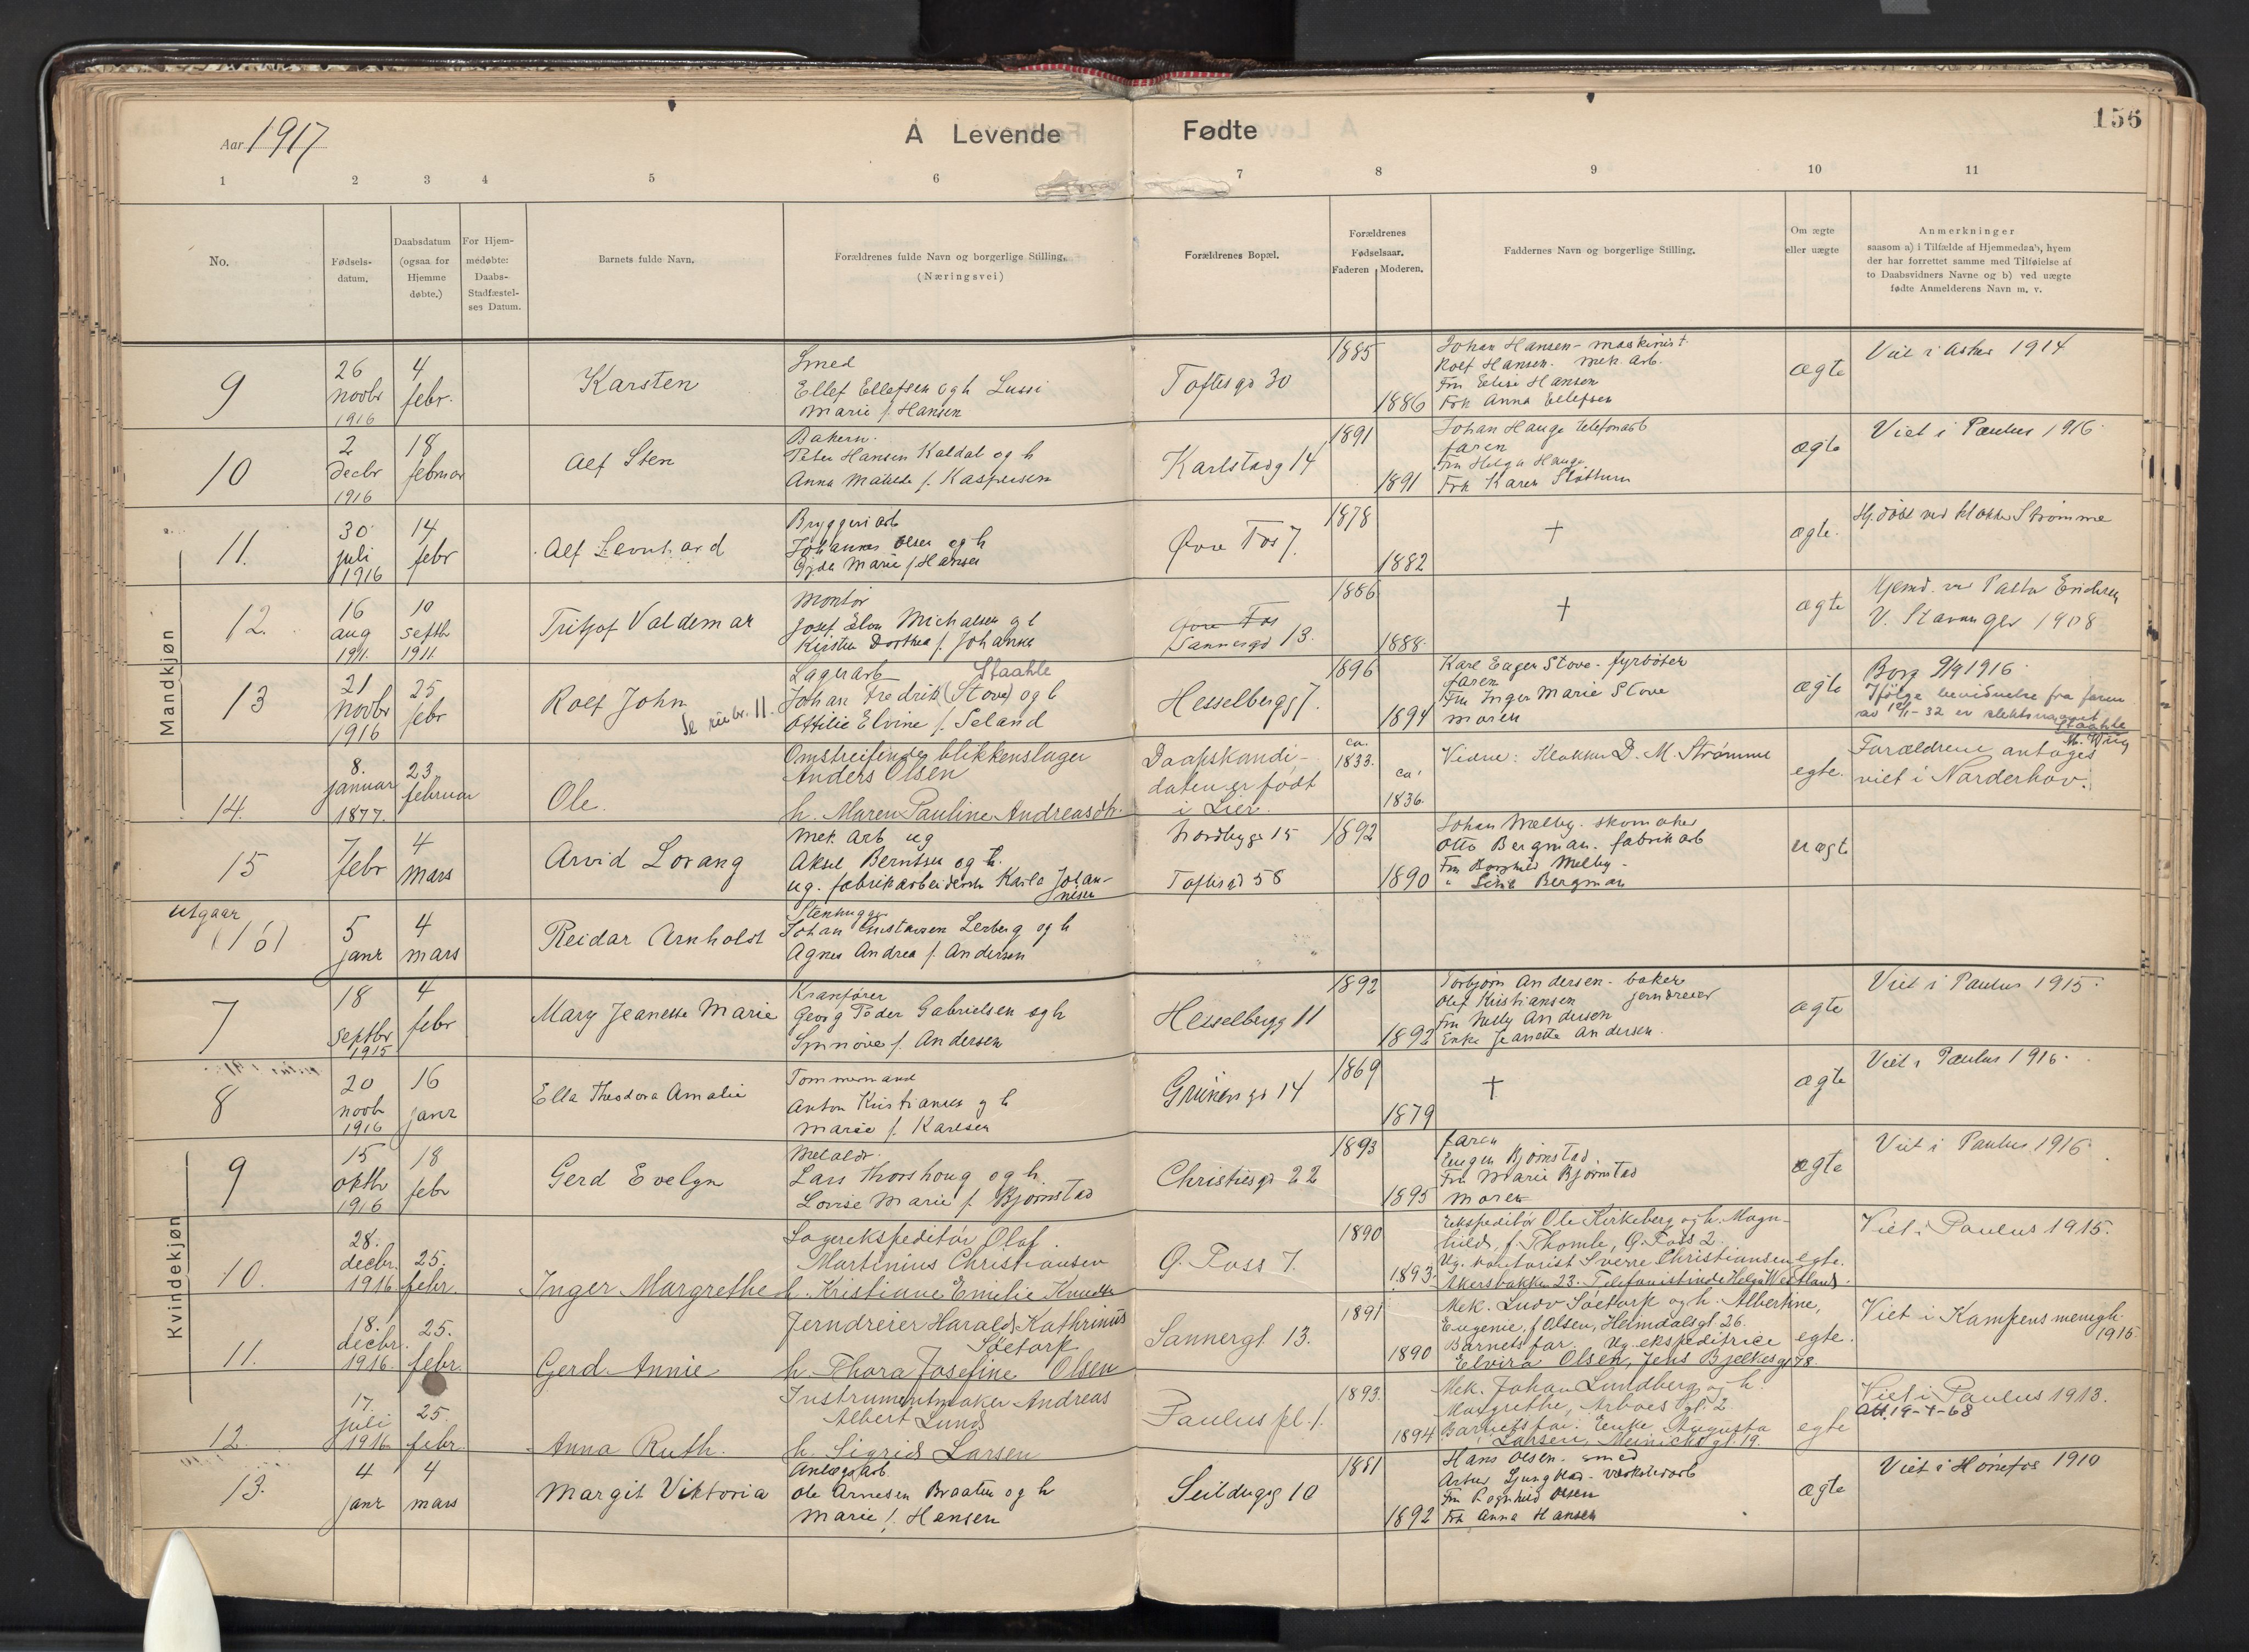 156
Aar 1917
A Levende Fødte
1 2 3 4 5 6 7 8 9 10 11
No.
Fødsels-
datum.
Daabsdatum
(ogsaa for
Hjemme
døbte.)
For Hjem-
medøbte:
Daabs-
Stadfæstel-
ses Datum.
Barnets fulde Navn.
Forældrenes fulde Navn og borgerlige Stilling.
(Næringsvei)
Forældrenes Bopæl.
Forældrenes
Fødselsaar.
Faderen Moderen.
Faddernes Navn og borgerlige Stilling.
Om ægte
eller uægte
Anmerkninger
saasom a) i Tilfælde af Hjemmedaab, hvem
der har forrettet samme med Tilføielse af
to Daabsvidners Navne og b) ved uægte
fødte Anmelderens Navn m. v.
Mandkjøn
9
26
novbr
1916
4
febr.
Karsten
Smed
Ellef Ellefsen og h Lussi
Marie f. Hansen
Toftesgd 30
1885
1886
Johan Hansen - maskinist
Rolf Hansen. mek. arb.
Fru Elise Hansen
Frk Anna Ellefsen
ægte
Viet i Asker 1914
10
2
decbr
1916
18
februar
Alf Sten
Bakersv.
Peter Hansen Kaldal og h
Anna Matilde f. Kaspersen
Karlstadg 14
1891
1891
Johan Hauge telefonarb
faren
Fru Helga Hauge
Frk Karen Slottum
ægte
Viet i Paulus 1916
11.
30
juli
1916
14
febr
Alf Leonhard
Bryggeri arb
Johannes Olsen og h
Gyda Marie f Hansen
Øvre Fos 7.
1878
1882
+
ægte.
Hj. døbt ved klokker Strømme
12.
16
aug
1911.
10
septbr
1911.
Tritjof Valdemar
Montør
Josef Elon Michalsen og h
Kirsten Dorthea f. Johansen
Øvre Fos
Sannergd 13.
1886
1888.
+
ægte
Hjemd. ved Pastor Erichsen
V. Stavanger 1908
13
21
novbr
1916
25
febr
Rolf John
Se rubr. 11.
Lagerarb Staahle
Johan Fredrik (Stove) og h
Ottilie Elvine f. Seland
Hesselbergg 7.
1896
1894
Karl Eugen Stove - fyrbøter
faren
Fru Inger Marie Stove
moren
ægte
Borg 9/9 1916
Ifølge bevidnelse fra faren
av 12/1-32 er slektsnavnet
Staahle
M. Wiig
14.
8.
januar
1877.
23
februar
Ole.
Omstreifende blikkenslager
Anders Olsen
h. Maren Pauline Andreasdtr.
Daapskandi-
daten er født
i Lier.
ca.
1833.
ca.
1836.
Vidne: Klokker D. M. Strømme
egte.
Forældrene antages
viet i Norderhov.
15
7
febr
4
mars
Arvid Lorang
Mek arb ug
Aksel Berntsen og h.
ug. fabrikarbeiderske Karla Johan-
nesen
Nordbygt 15
Toftesgd 58
1892
1890
Johan Melby. skomaker
Otto Bergman. fabrikarb
Fru Borghild Melby -
" Lina Bergman
uægt
utgaar
(16)
5
janr
4
mars
Reidar Arnholdt
Stenhugger
Johan Gustavsen Lerberg og h
Agnes Andrea f. Andersen
Kvindekjøn
7
18
septbr
1915
4
febr
Mary Jeanette Marie
Kranfører
Georg Peder Gabrielsen og h
Synnøve f. Andersen
Hesselbergg 11
1892
1892
Torbjørn Andersen - baker
Olaf Kristiansen jerndreier
Fru Nelly Andersen
Enke Jeanette Andersen.
ægte
Viet i Paulus 1915.
8
20
novb
1916
16
janr
Ella Theodora Amalie
Tømmermand
Anton Kristiansen og h
Marie f. Karlsen
Grünersgd 14
1869
1879
+
ægte
Viet i Paulus 1916.
9
15
oktbr
1916
18
febr
Gerd Evelyn
Metaldr.
Lars Thorshoug og h.
Lovise Marie f. Bjørnstad
Christiesgd 22
1893
1895
faren
Eugen Bjørnstad
Fru Marie Bjørnstad
moren
ægte
Viet i Paulus 1916.
10.
28.
decbr.
1916
25.
febr.
Inger Margrethe
Lagerekspeditør Olaf
Martinius Christiansen
h. Kristiane Emilie Knudsen
Ø. Foss 7.
1890
1893.
Ekspeditør Ole Kirkeberg og h. Magn-
hild, f. Thomle, Ø. Foss 2.
Ug. kontorist Sverre Christiansen
Akersbakken 23. Telefonistinde Helga Westland.
egte.
Viet i Paulus 1915.
11.
18.
decbr.
1916.
25.
febr.
Gerd Annie
Jerndreier Harald Kathrinius
Søetorp
h. Thora Josefine Olsen
Sannergt. 13.
1891
1890
Mek. Ludv Søetorp og h. Albertine,
Eugenie, f Olsen, Heimdalsgt 26.
Barnets far. Ug. ekspeditrice
Elvira Olsen, Jens Bjelkesgt 78.
egte.
Viet i Kampens menigh.
1915
12.
17.
juli
1916
25.
febr.
Anna Ruth.
Instrumentmaker Andreas
Albert Lund
h. Sigrid Larsen
Paulus pl. 1.
1893.
1894
Mek. Johan Lundberg og h.
Margrethe, Arboes gt. 2
Barnets far. Enke Augusta
Larsen, Meinichs gt. 19.
egte
Viet i Paulus 1913.
Att. 19-4-68
13.
4
janr
4
mars
Margit Viktoria
Anlegsarb
Ole Arnesen Braaten og h
Marie f. Hansen
Seildugsg 10
1881
1892
Hans Olsen. smed
Artur Ljungblad - verkstedarb
Fru Ragnhild Olsen
Frk Anna Hansen
ægte
Viet i Hønefos 1910